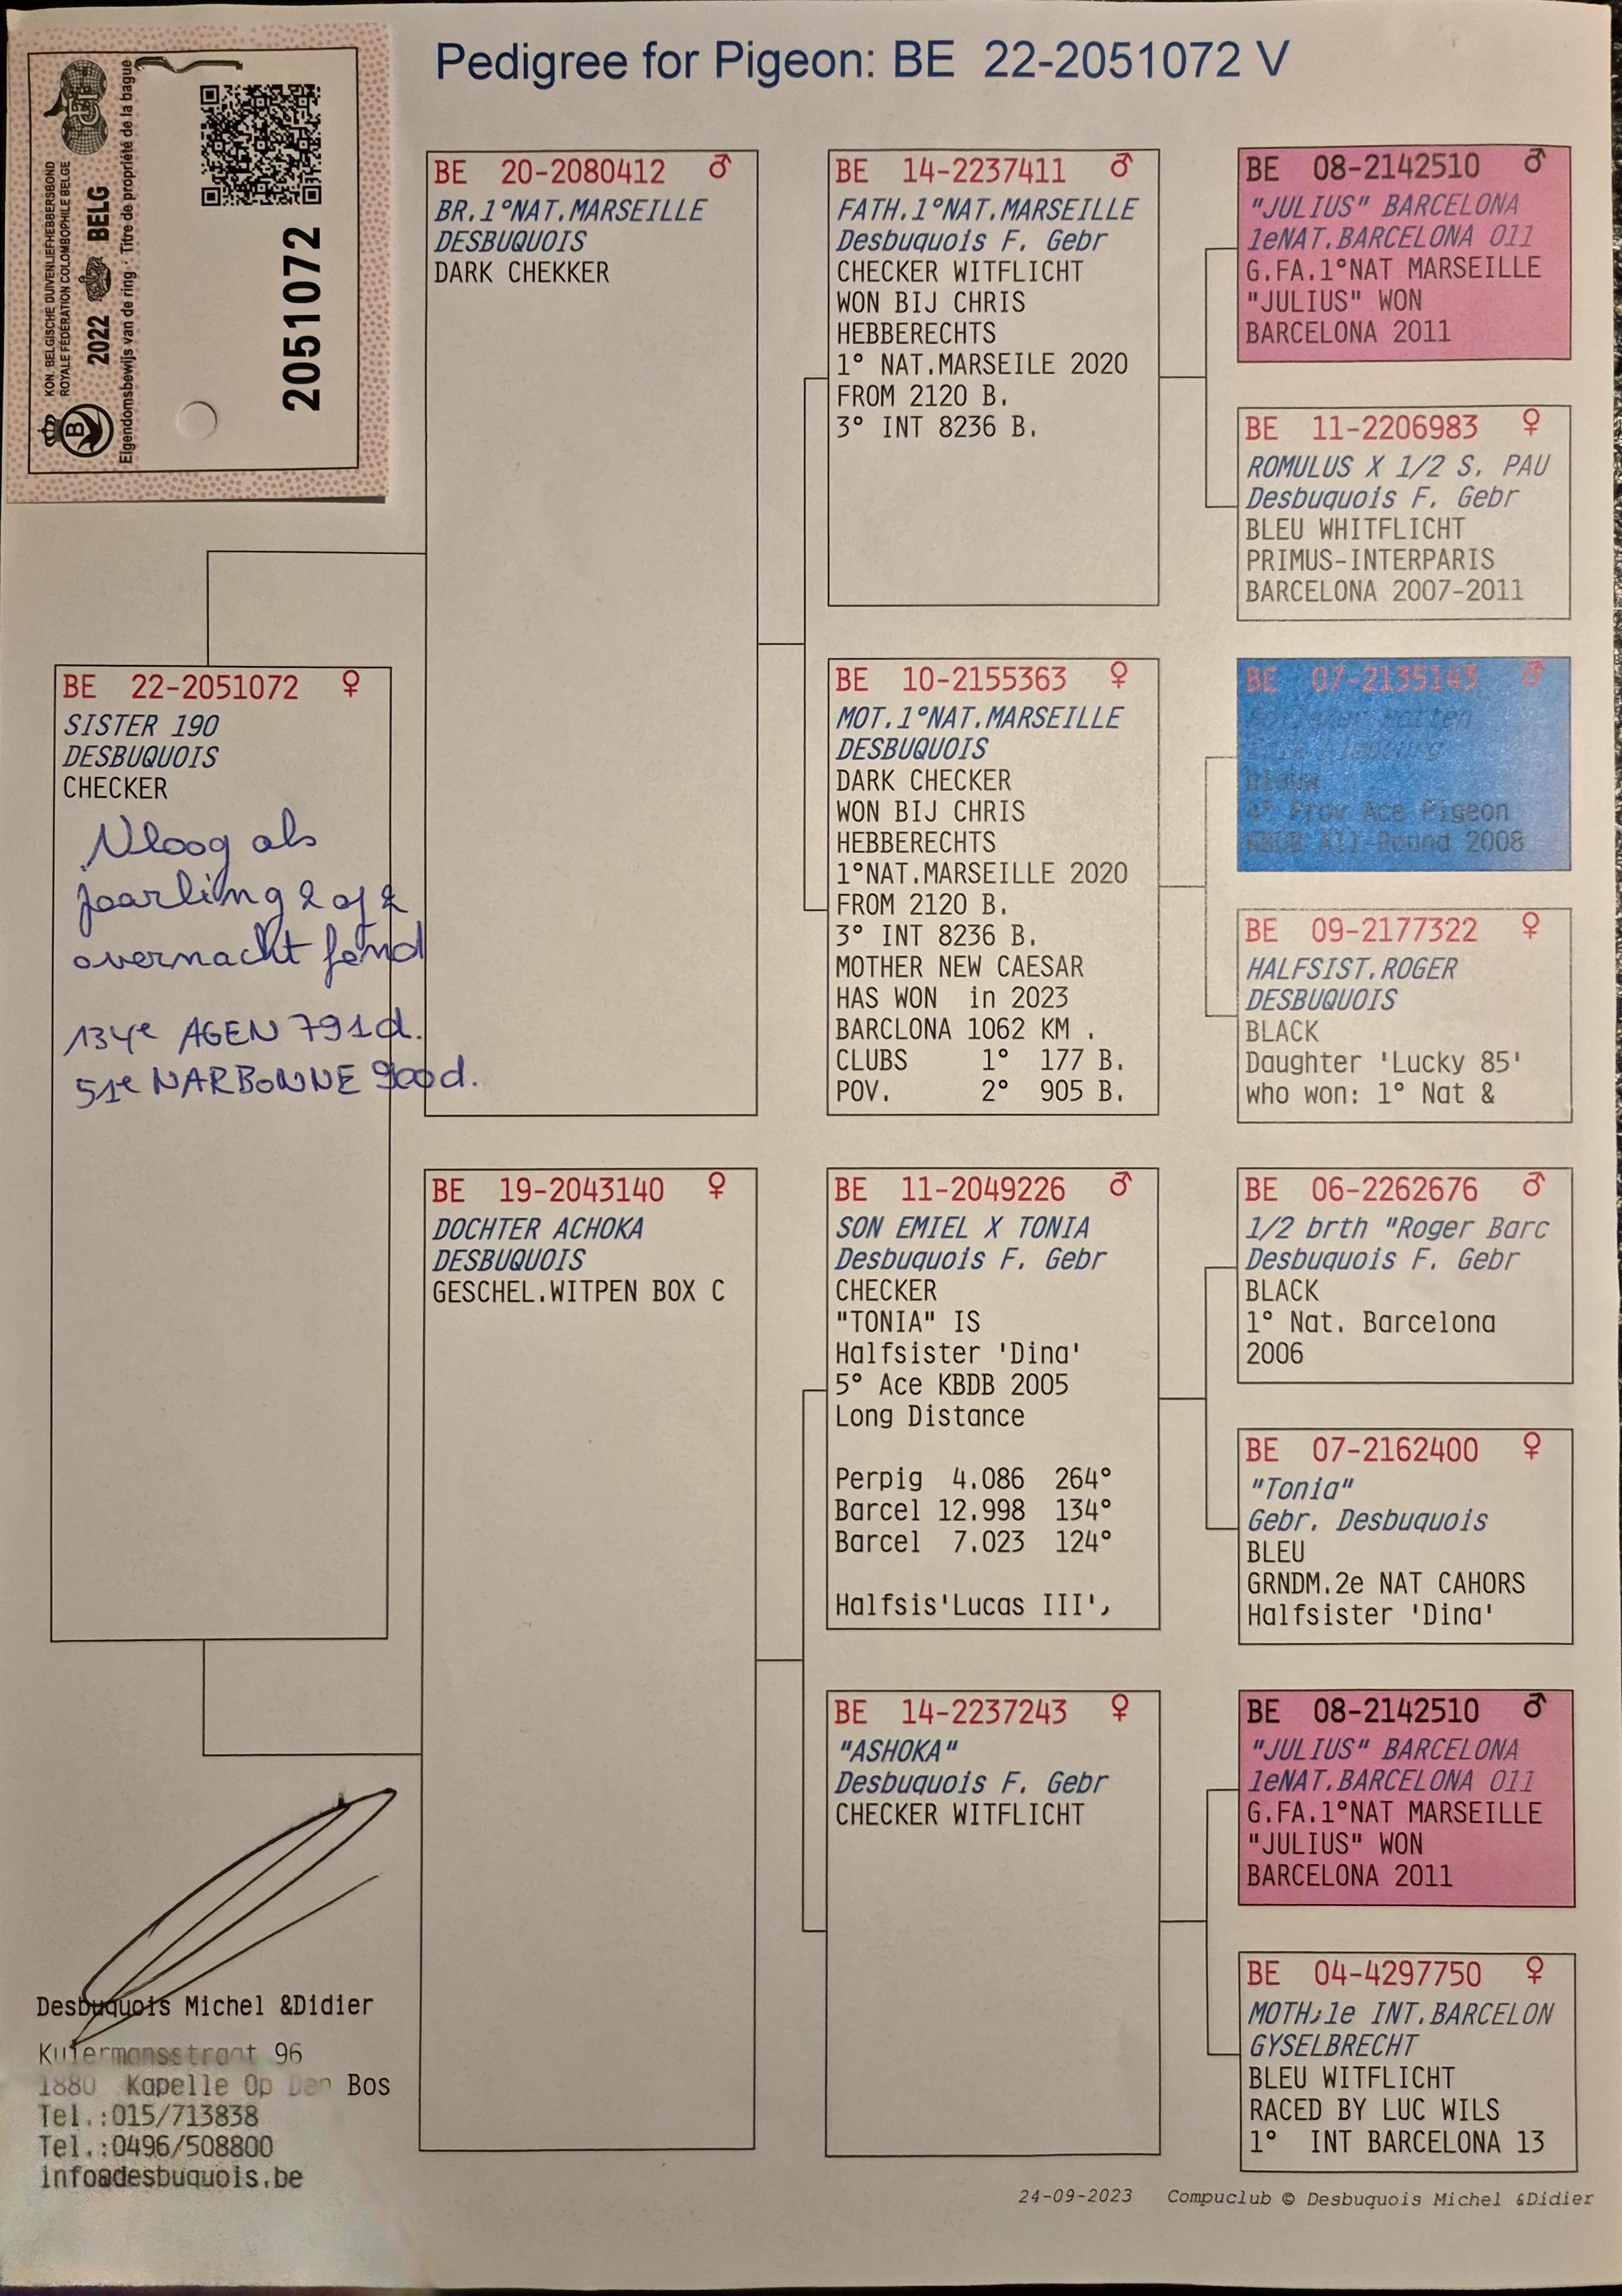 Pedigree for Pigeon: BE 22-2051072 V
KON. BELGISCHE DUIVENLIEFHEBBERSBOND
ROYALE FÉDÉRATION COLOMBOPHILE BELGE
2022 BELG
Eigendomsbewijs van de ring - Titre de propriété de la bague
2051072
B
BE 22-2051072 ♀
SISTER 190
DESBUQUOIS
CHECKER
Vloog als
jaarling 2 of 2
overnacht fond
134e AGEN 791d.
51e NARBONNE 900d.
BE 20-2080412 ♂
BR.1°NAT.MARSEILLE
DESBUQUOIS
DARK CHEKKER
BE 19-2043140 ♀
DOCHTER ACHOKA
DESBUQUOIS
GESCHEL.WITPEN BOX C
BE 14-2237411 ♂
FATH.1°NAT.MARSEILLE
Desbuquois F. Gebr
CHECKER WITFLICHT
WON BIJ CHRIS
HEBBERECHTS
1° NAT.MARSEILE 2020
FROM 2120 B.
3° INT 8236 B.
BE 10-2155363 ♀
MOT.1°NAT.MARSEILLE
DESBUQUOIS
DARK CHECKER
WON BIJ CHRIS
HEBBERECHTS
1°NAT.MARSEILLE 2020
FROM 2120 B.
3° INT 8236 B.
MOTHER NEW CAESAR
HAS WON in 2023
BARCLONA 1062 KM .
CLUBS 1° 177 B.
POV. 2° 905 B.
BE 11-2049226 ♂
SON EMIEL X TONIA
Desbuquois F. Gebr
CHECKER
"TONIA" IS
Halfsister 'Dina'
5° Ace KBDB 2005
Long Distance
Perpig 4.086 264°
Barcel 12.998 134°
Barcel 7.023 124°
Halfsis'Lucas III',
BE 14-2237243 ♀
"ASHOKA"
Desbuquois F. Gebr
CHECKER WITFLICHT
BE 08-2142510 ♂
"JULIUS" BARCELONA
1eNAT.BARCELONA 011
G.FA.1°NAT MARSEILLE
"JULIUS" WON
BARCELONA 2011
BE 11-2206983 ♀
ROMULUS X 1/2 S. PAU
Desbuquois F. Gebr
BLEU WHITFLICHT
PRIMUS-INTERPARIS
BARCELONA 2007-2011
BE 07-2135143 ♂
blauw
4° Prov Ace Pigeon
KBDB All Round 2008
BE 09-2177322 ♀
HALFSIST.ROGER
DESBUQUOIS
BLACK
Daughter 'Lucky 85'
who won: 1° Nat &
BE 06-2262676 ♂
1/2 brth "Roger Barc
Desbuquois F. Gebr
BLACK
1° Nat. Barcelona
2006
BE 07-2162400 ♀
"Tonia"
Gebr. Desbuquois
BLEU
GRNDM.2e NAT CAHORS
Halfsister 'Dina'
BE 08-2142510 ♂
"JULIUS" BARCELONA
1eNAT.BARCELONA 011
G.FA.1°NAT MARSEILLE
"JULIUS" WON
BARCELONA 2011
BE 04-4297750 ♀
MOTH;1e INT.BARCELON
GYSELBRECHT
BLEU WITFLICHT
RACED BY LUC WILS
1° INT BARCELONA 13
Desbuquois Michel &Didier
96
1880 Kapelle Op Den Bos
Tel.:015/713838
Tel.:0496/508800
info@desbuquois.be
24-09-2023 Compuclub © Desbuquois Michel &Didier